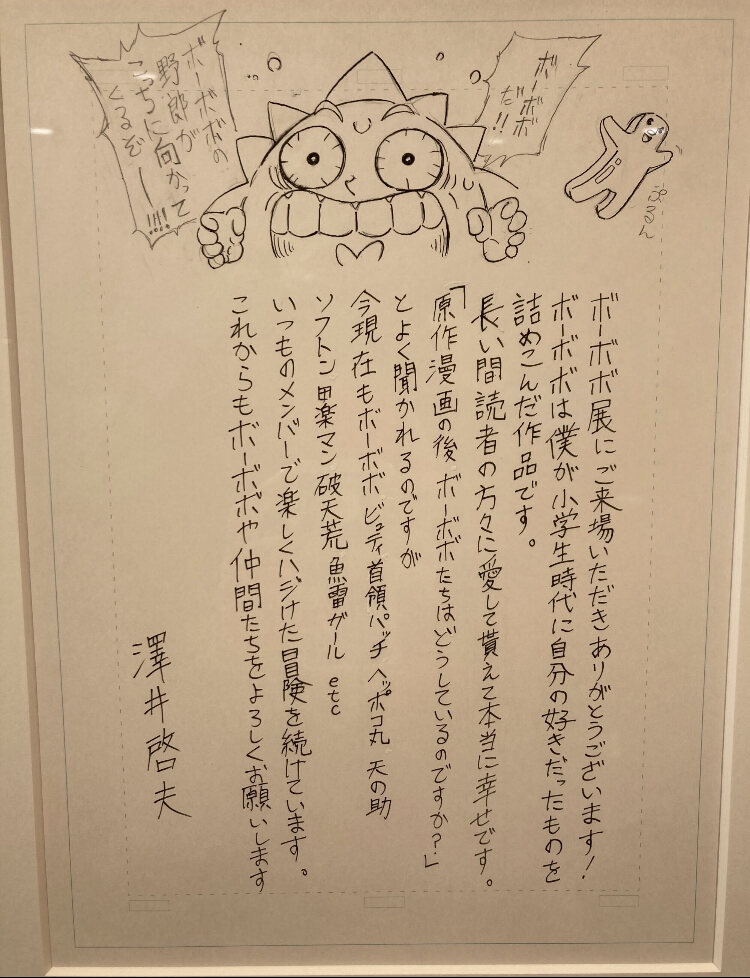 ボーボボ
だ!!
ボーボボの
野郎が
こっちに向かって
くるぞー!!!!
ぷるん
ボーボボ展にご来場いただきありがとうございます!
ボーボボは僕が小学生時代に自分の好きだったものを
詰めこんだ作品です。
長い間読者の方々に愛して貰えて本当に幸せです。
「原作漫画の後 ボーボボたちはどうしているのですか?」
とよく聞かれるのですが
今現在もボーボボ ビュティ 首領パッチ ヘッポコ丸 天の助
ソフトン 田楽マン 破天荒 魚雷ガール etc
いつものメンバーで楽しくハジけた冒険を続けています。
これからもボーボボや仲間たちをよろしくお願いします
澤井啓夫